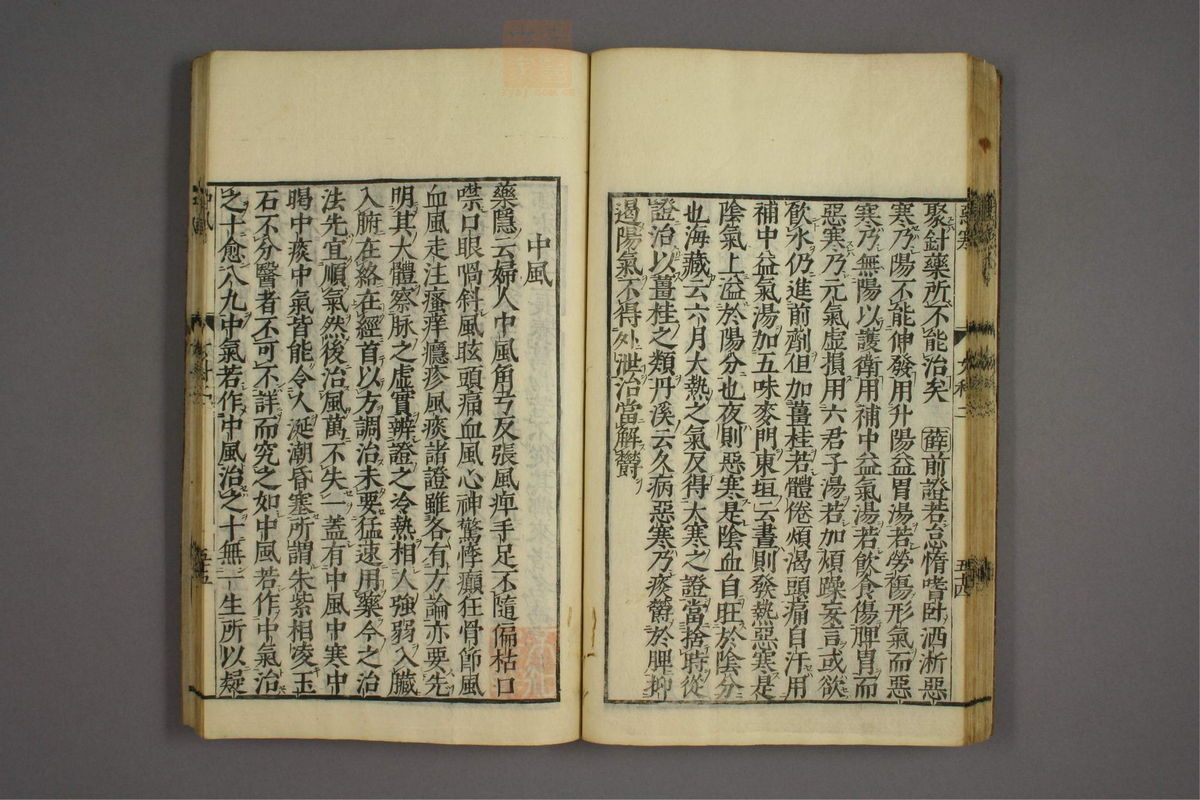 聚針藥所不能治矣 薛前證若怠惰嗜卧洒淅惡
寒乃陽不能伸發用升陽益胃湯若勞傷形氣而惡
寒乃無陽以護衛用補中益氣湯若飲食傷脾胃而
惡寒乃元氣虛損用六君子湯若加煩躁妄言或欲
飲水仍進前劑但加薑桂若體倦煩渴頭痛自汗用
補中益氣湯加五味麥門東垣云晝則發熱惡寒是
陰氣上溢於陽分也夜則惡寒是陰血自旺於陰分
也海藏云六月大熱之氣反得大寒之證當捨時從
證治以薑桂之類丹溪云久病惡寒乃痰鬱於脾抑
遏陽氣不得外泄治當解鬱
惡寒 女科二 五十四
中風
藥隱云婦人中風角弓反張風痺手足不隨偏枯口
噤口眼喎斜風眩頭痛血風心神驚悸癲狂骨節風
血風走注瘙痒癮疹風痰諸證雖各有方論亦要先
明其大體察脉之虛實辨證之冷熱相人強弱入臟
入腑在絡在經首以方調治未要猛速用藥今之治
法先宜順氣然後治風萬不失一蓋有中風中寒中
暍中痰中氣皆能令人涎潮昏塞所謂朱紫相凌玉
石不分醫者不可不詳而究之如中風若作中氣治
之十愈八九中氣若作中風治之十無一生所以疑